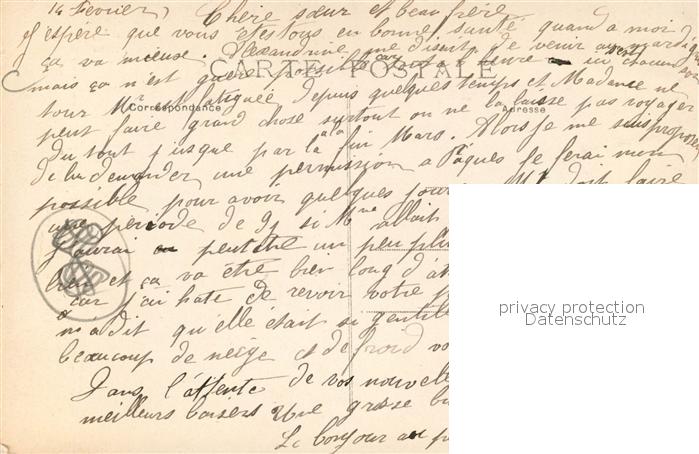 14 Février, Chère sœur et beau frère
J'espère que vous êtes tous en bonne santé quand a moi
ça va mieux Alexandrine me disait de venir au mardi gras
mais ça n'est guère possible car
CARTE POSTALE
tour Mr est fatiguée depuis quelques temps et Madame ne
Correspondance
Adresse
peut faire grand chose surtout on ne la laisse pas voyager
du tout jusque par la fin Mars. Alors je me suis proposer
de lui demander une permission a Pâques je ferai mon
possible pour avoir quelques jours
une période de 9j si Mme allait
j'aurai peutêtre un peu plus
et ça va être bien long d'
car j'ai hate de revoir votre
m'a dit qu'elle était si gentille
beaucoup de neige et de froid
Dans l'attente de vos nouvelles
meilleurs baisers Une grosse
Le bonjour au
privacy protection
Datenschutz